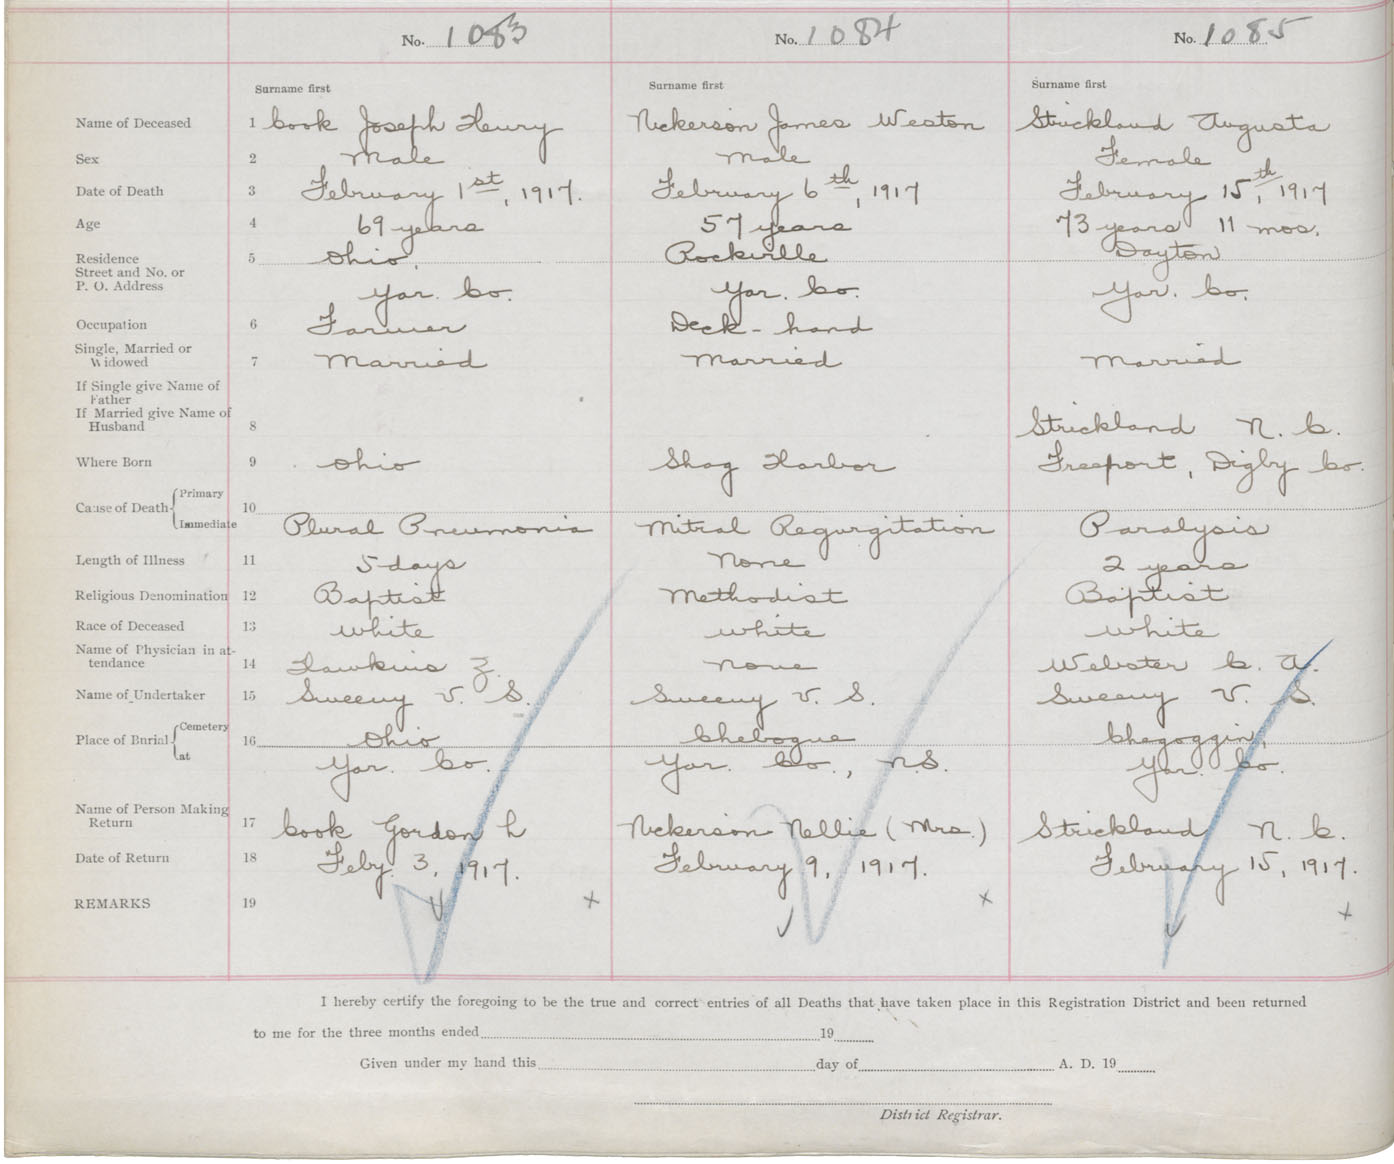 No. 1083 No. 1084 No. 1085
Surname first Surname first Surname first
Name of Deceased 1 Cook Joseph Henry Nickerson James Weston Strickland Augusta
Sex 2 Male Male Female
Date of Death 3 February 1st, 1917. February 6th, 1917 February 15th, 1917
Age 4 69 years 57 years 73 years 11 mos.
Residence 5 Ohio, Rockville Dayton
Street and No. or
P. O. Address Yar. Co. Yar. Co. Yar. Co.
Occupation 6 Farmer Deck-hand
Single, Married or
Widowed 7 Married Married Married
If Single give Name of
Father
If Married give Name of
Husband 8 Strickland N. C.
Where Born 9 Ohio Shag Harbor Freeport, Digby Co.
Primary
Cause of Death 10
Immediate Plural Pneumonia Mitral Regurgitation Paralysis
Length of Illness 11 5 days None 2 years
Religious Denomination 12 Baptist Methodist Baptist
Race of Deceased 13 White White White
Name of Physician in at-
tendance 14 Hawkins Z. None Webster C. A.
Name of Undertaker 15 Sweeny V. S. Sweeny V. S. Sweeny V. S.
Cemetery
Place of Burial 16 Ohio Chebogue Chegoggin,
at Yar. Co. Yar. Co., N.S. Yar. Co.
Name of Person Making
Return 17 Cook Gordon L Nickerson Nellie (Mrs.) Strickland N. C.
Date of Return 18 Feby. 3, 1917. February 9, 1917. February 15, 1917.
REMARKS 19 x x x
I hereby certify the foregoing to be the true and correct entries of all Deaths that have taken place in this Registration District and been returned
to me for the three months ended 19
Given under my hand this day of A. D. 19
District Registrar.